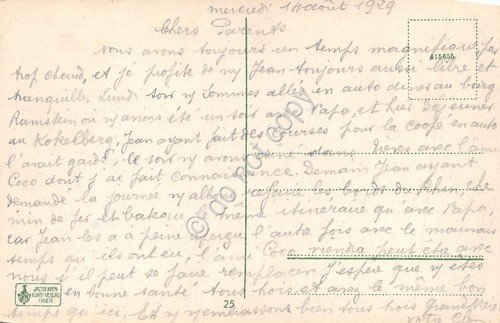 mercredi 14 août 1929
Chers Parents.
nous avons toujours un temps magnifique, pas
trop chaud, et je profite de Jean toujours aussi libre et
tranquille. Lundi soir ns sommes allés en auto dîner au burg
Ramstein ou ns avons été un soir avec Papa, et hier déjeuner
au Kokelberg, Jean ayant fait des courses pour la coopé en auto
l'avait gardé, le soir ns avons dîné dans Trèves avec l'ami
Coco dont j'ai fait connaissance. Demain Jean ayant
demandé la journée ns allons refaire les bords du Rhin, che
min de fer et bateau, même itinéraire qu'avec Papa,
car Jean les a à peine aperçu l'autre fois avec le mauvais
temps qu'ils ont eu, l'ami Coco viendra peut être avec
nous s'il peut se faire remplacer. J'espère que vs êtes
en bonne santé tous trois et avez le même bon
temps qu'ici. Et ns embrassons bien tous trois Grand'Mère
votre
415655
JACOB KRON
KUNST-VERLAG
TRIER
25
© DO NOT COPY